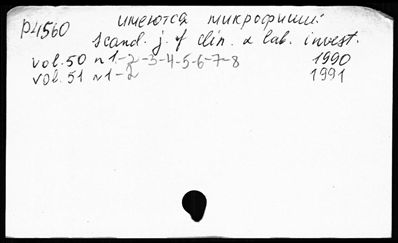 P4560 имеются микрофиши:
Scand. j. of clin. & lab. invest.
vol. 50 n 1-2-3-4-5-6-7-8 1990
vol. 51 n 1-2 1991